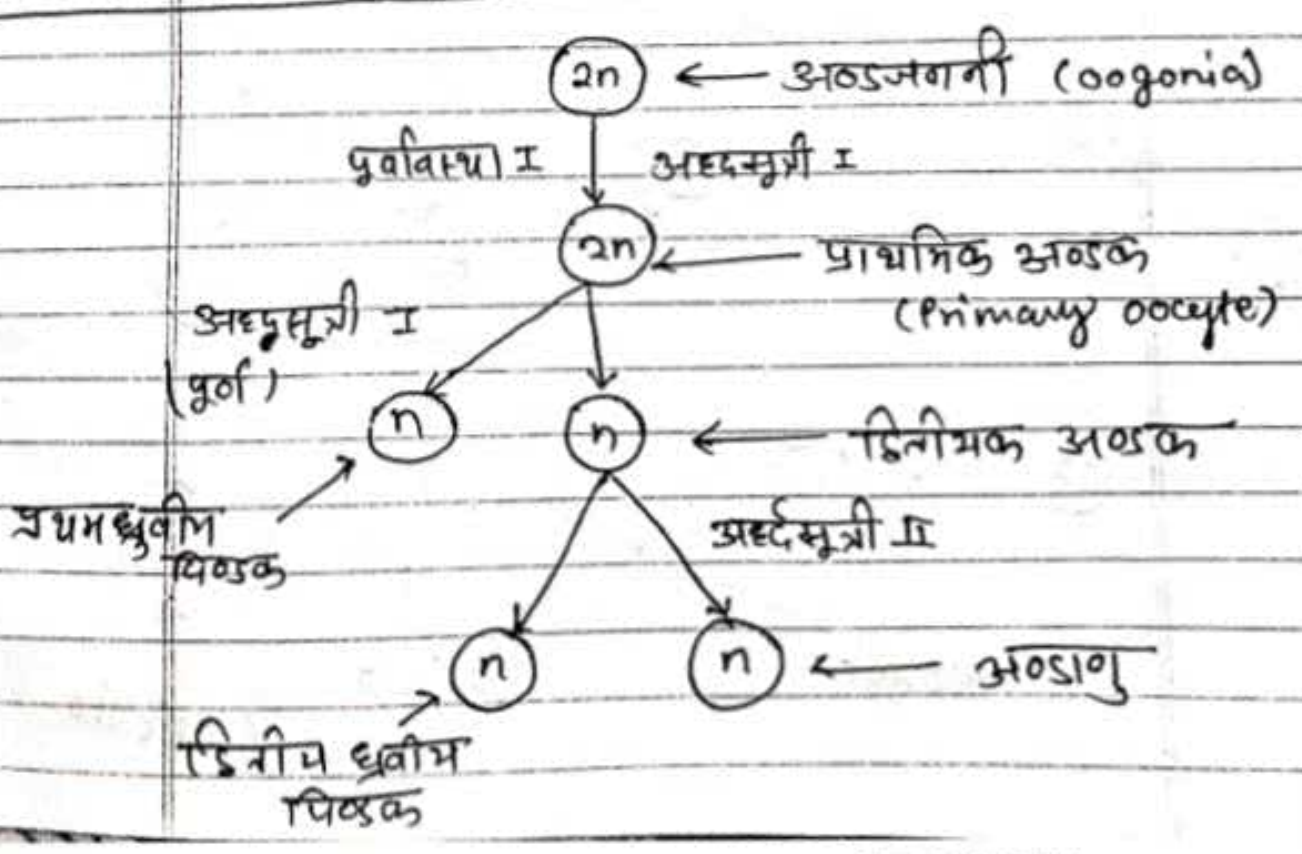 2n ← अण्डजननी (oogonia)
पूर्वावस्था I अर्द्धसूत्री I
2n ← प्राथमिक अण्डक
(Primary oocyte)
अर्द्धसूत्री I
(पूर्ण)
n n ← द्वितीयक अण्डक
प्रथम ध्रुवीय
पिण्डक
अर्द्धसूत्री II
n n ← अण्डाणु
द्वितीय ध्रुवीय
पिण्डक